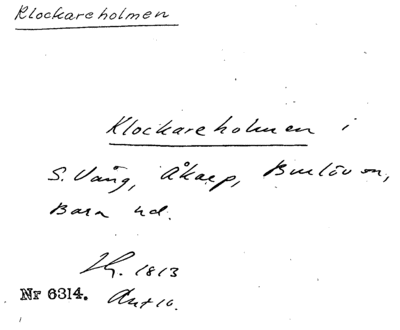 Klockareholmen
Klockareholmen i
S. Vång, Åkarp, Burlöv sn,
Bara hd.
1813
Nr 6314.